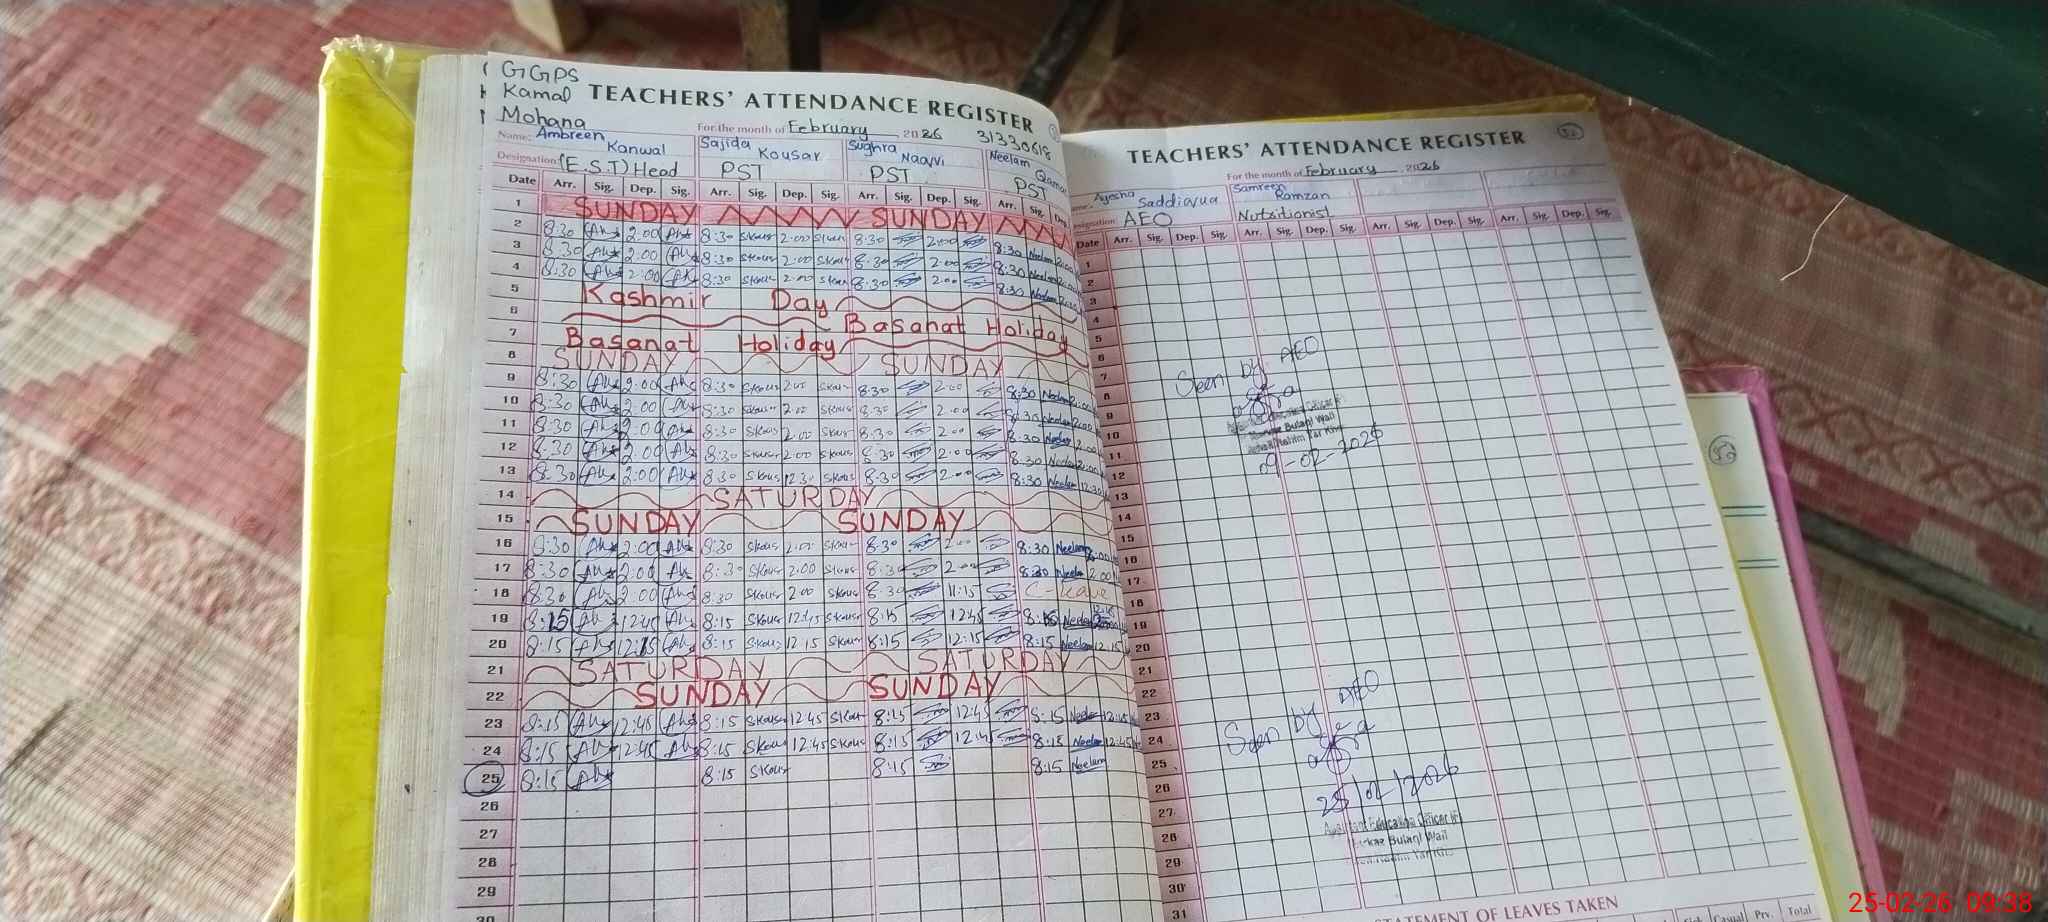 GGPS
Kamal
Mohana
TEACHERS' ATTENDANCE REGISTER
For the month of February 2026 31330618
Name: Ambreen Kanwal Sajida Kousar Sughra Naqvi Neelam
Designation: (E.S.T) Head PST PST PST
Date Arr. Sig. Dep. Sig. Arr. Sig. Dep. Sig. Arr. Sig. Dep. Sig. Arr. Sig.
1 SUNDAY SUNDAY
2 8:30 2:00 8:30 Skous 2:00 Skous 8:30 2:00 8:30 Neelam 2:00
3 8:30 2:00 8:30 Skous 2:00 Skous 8:30 2:00 8:30 Neelam 2:00
4 8:30 2:00 8:30 Skous 2:00 Skous 8:30 2:00 8:30 Neelam 2:00
5 Kashmir Day
6 Basanat Holiday
7 Basanat Holiday
8 SUNDAY SUNDAY
9 8:30 2:00 8:30 Skous 2:00 Skous 8:30 2:00 8:30 Neelam 2:00
10 8:30 2:00 8:30 Skous 2:00 Skous 8:30 2:00 8:30 Neelam 2:00
11 8:30 2:00 8:30 Skous 2:00 Skous 8:30 2:00 8:30 Neelam 2:00
12 8:30 2:00 8:30 Skous 2:00 Skous 8:30 2:00 8:30 Neelam 2:00
13 8:30 2:00 8:30 Skous 12:30 Skous 8:30 2:00 8:30 Neelam 12:30
14 SATURDAY
15 SUNDAY SUNDAY
16 8:30 2:00 8:30 Skous 2:00 Skous 8:30 2:00 8:30 Neelam 2:00
17 8:30 2:00 8:30 Skous 2:00 Skous 8:30 2:00 8:30 Neelam 2:00
18 8:30 2:00 8:30 Skous 2:00 Skous 8:30 11:15 C-leave
19 8:15 12:45 8:15 Skous 12:45 Skous 8:15 12:45 8:15 Neelam 12:45
20 8:15 12:15 8:15 Skous 12:15 Skous 8:15 12:15 8:15 Neelam 12:15
21 SATURDAY SATURDAY
22 SUNDAY SUNDAY
23 8:15 12:45 8:15 Skous 12:45 Skous 8:15 12:45 8:15 Neelam 12:45
24 8:15 12:45 8:15 Skous 12:45 Skous 8:15 12:45 8:15 Neelam 12:45
25 8:15 8:15 Skous 8:15 8:15 Neelam
26
27
28
29
30
TEACHERS' ATTENDANCE REGISTER
For the month of February 2026
Ayesha Saddiqua Samreen Ramzan
AEO Nutritionist
Date Arr. Sig. Dep. Sig. Arr. Sig. Dep. Sig. Arr. Sig. Dep. Sig. Arr. Sig. Dep. Sig.
1
2
3
4
5
6
7
8
9
10
11
12
13
14
15
16
17
18
19
20
21
22
23
24
25
26
27
28
29
30
31
Seen by AEO
Markaz Bulani Wali
09-02-2026
Seen by AEO
25/02/2026
Assistant Education Officer
Markaz Bulani Wali
STATEMENT OF LEAVES TAKEN
Casual Prv. Total
25-02-26 09:38